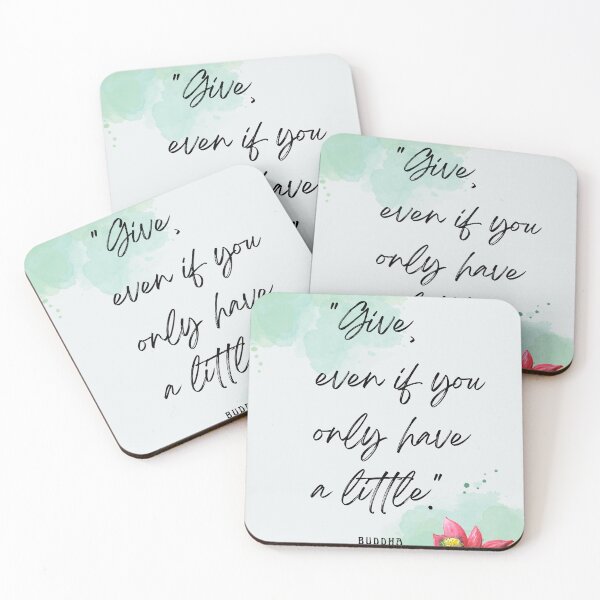 "Give,
even if you
have
"
"Give,
even if you
only have
"Give,
even if you
only have
a little
BUDDH
"Give,
even if you
only have
a little".
BUDDHA